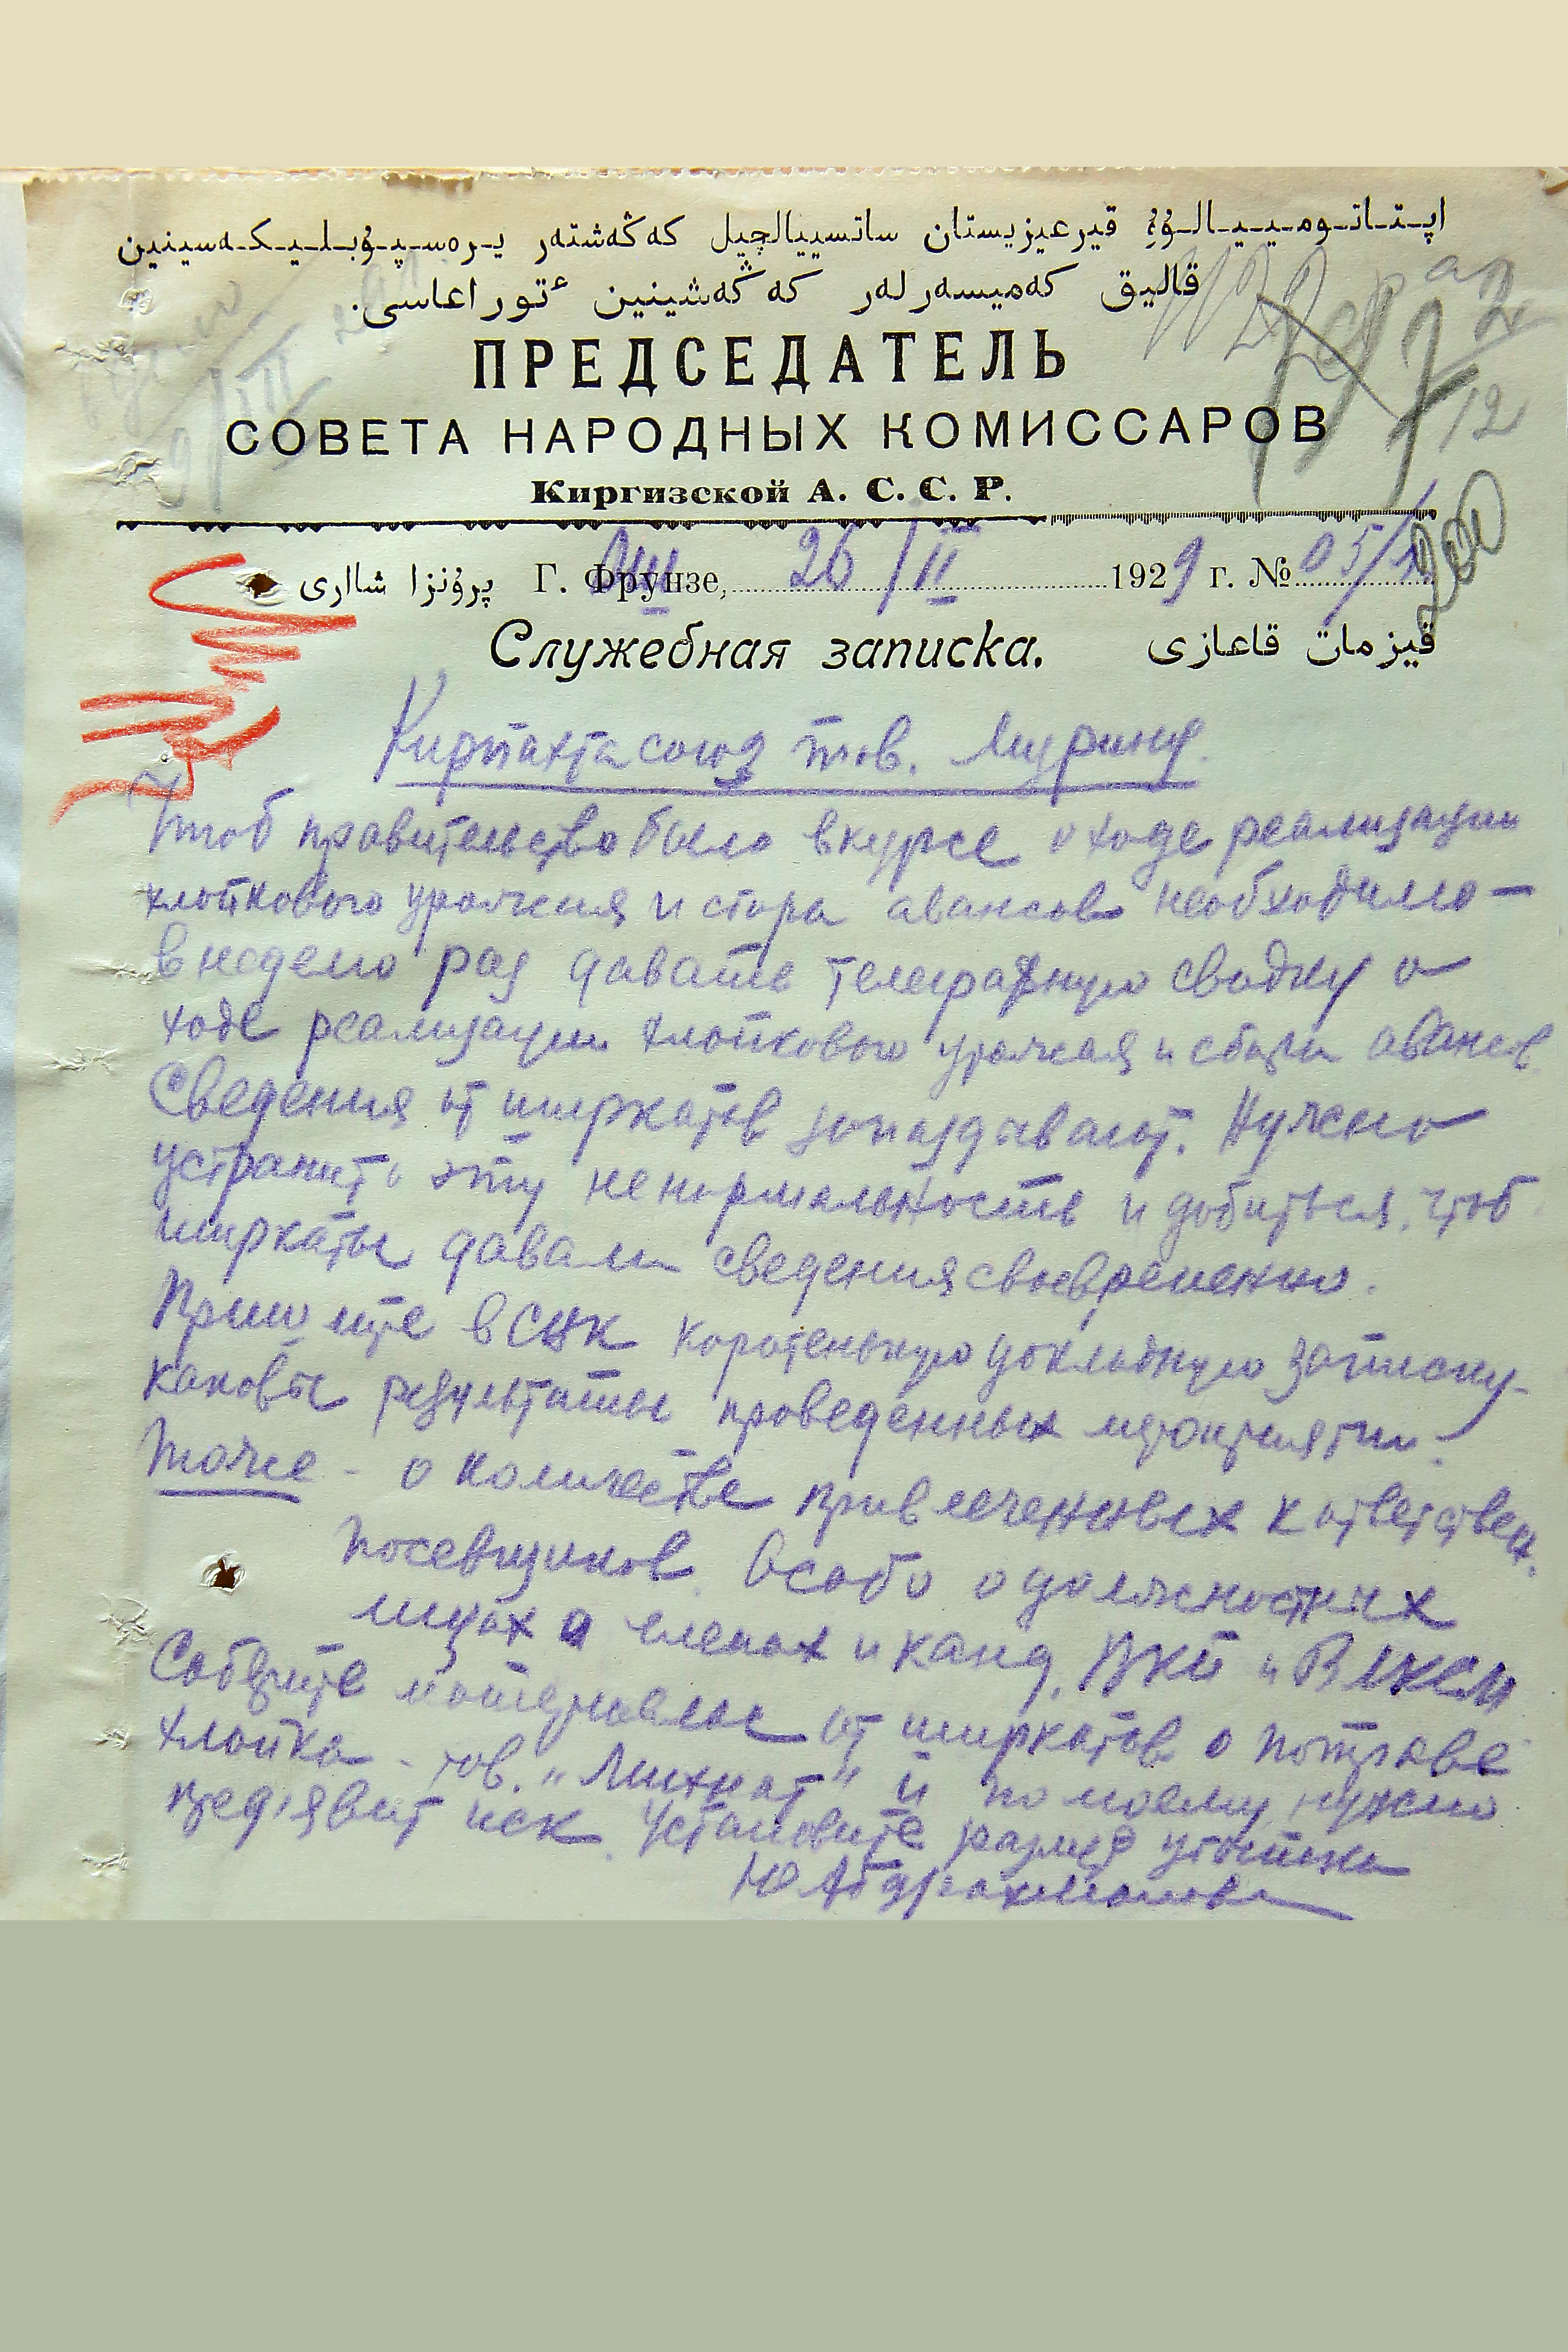 اپـتـانـومـيـيـالـۇۋ قيرعيزيستان ساتسييالچيل كەڭەشتەر يـرەسـپـۇبـلـيـكـەسينين
قاليق كەميسەرلەر كەڭەشينين ٴتوراعاسى.
ПРЕДСЕДАТЕЛЬ
СОВЕТА НАРОДНЫХ КОМИССАРОВ
Киргизской А. С. С. Р.
پرۇنزا شاارى Г. Фрунзе, 26/II 1929 г. № 05/
200
Служебная записка. قيزمات قاعازى
Кирпахтасоюз тов.
Чтоб правительство было в курсе о ходе реализации
хлопкового урожая и сбора авансов необходимо —
в неделю раз давать телеграфную сводку о
ходе реализации хлопкового урожая и сбора авансов
Сведения от ширкатов запаздывают. Нужно
устранить эту ненормальность и добиться, чтоб
ширкаты давали сведения своевременно.
Пришлите в СНК коротенькую докладную записку-
каковы результаты проведенных мероприятий.
Тоже - о количестве привлеченных к ответствен.
посевщиков. Особо о должностных
лицах и членах и канд. ВКП и ВЛКСМ
Соберите материалы от ширкатов о потраве
хлопка - тов. и по моему нужно
пред'явит иск. Установите размер убытка
Ю Абдрахманов